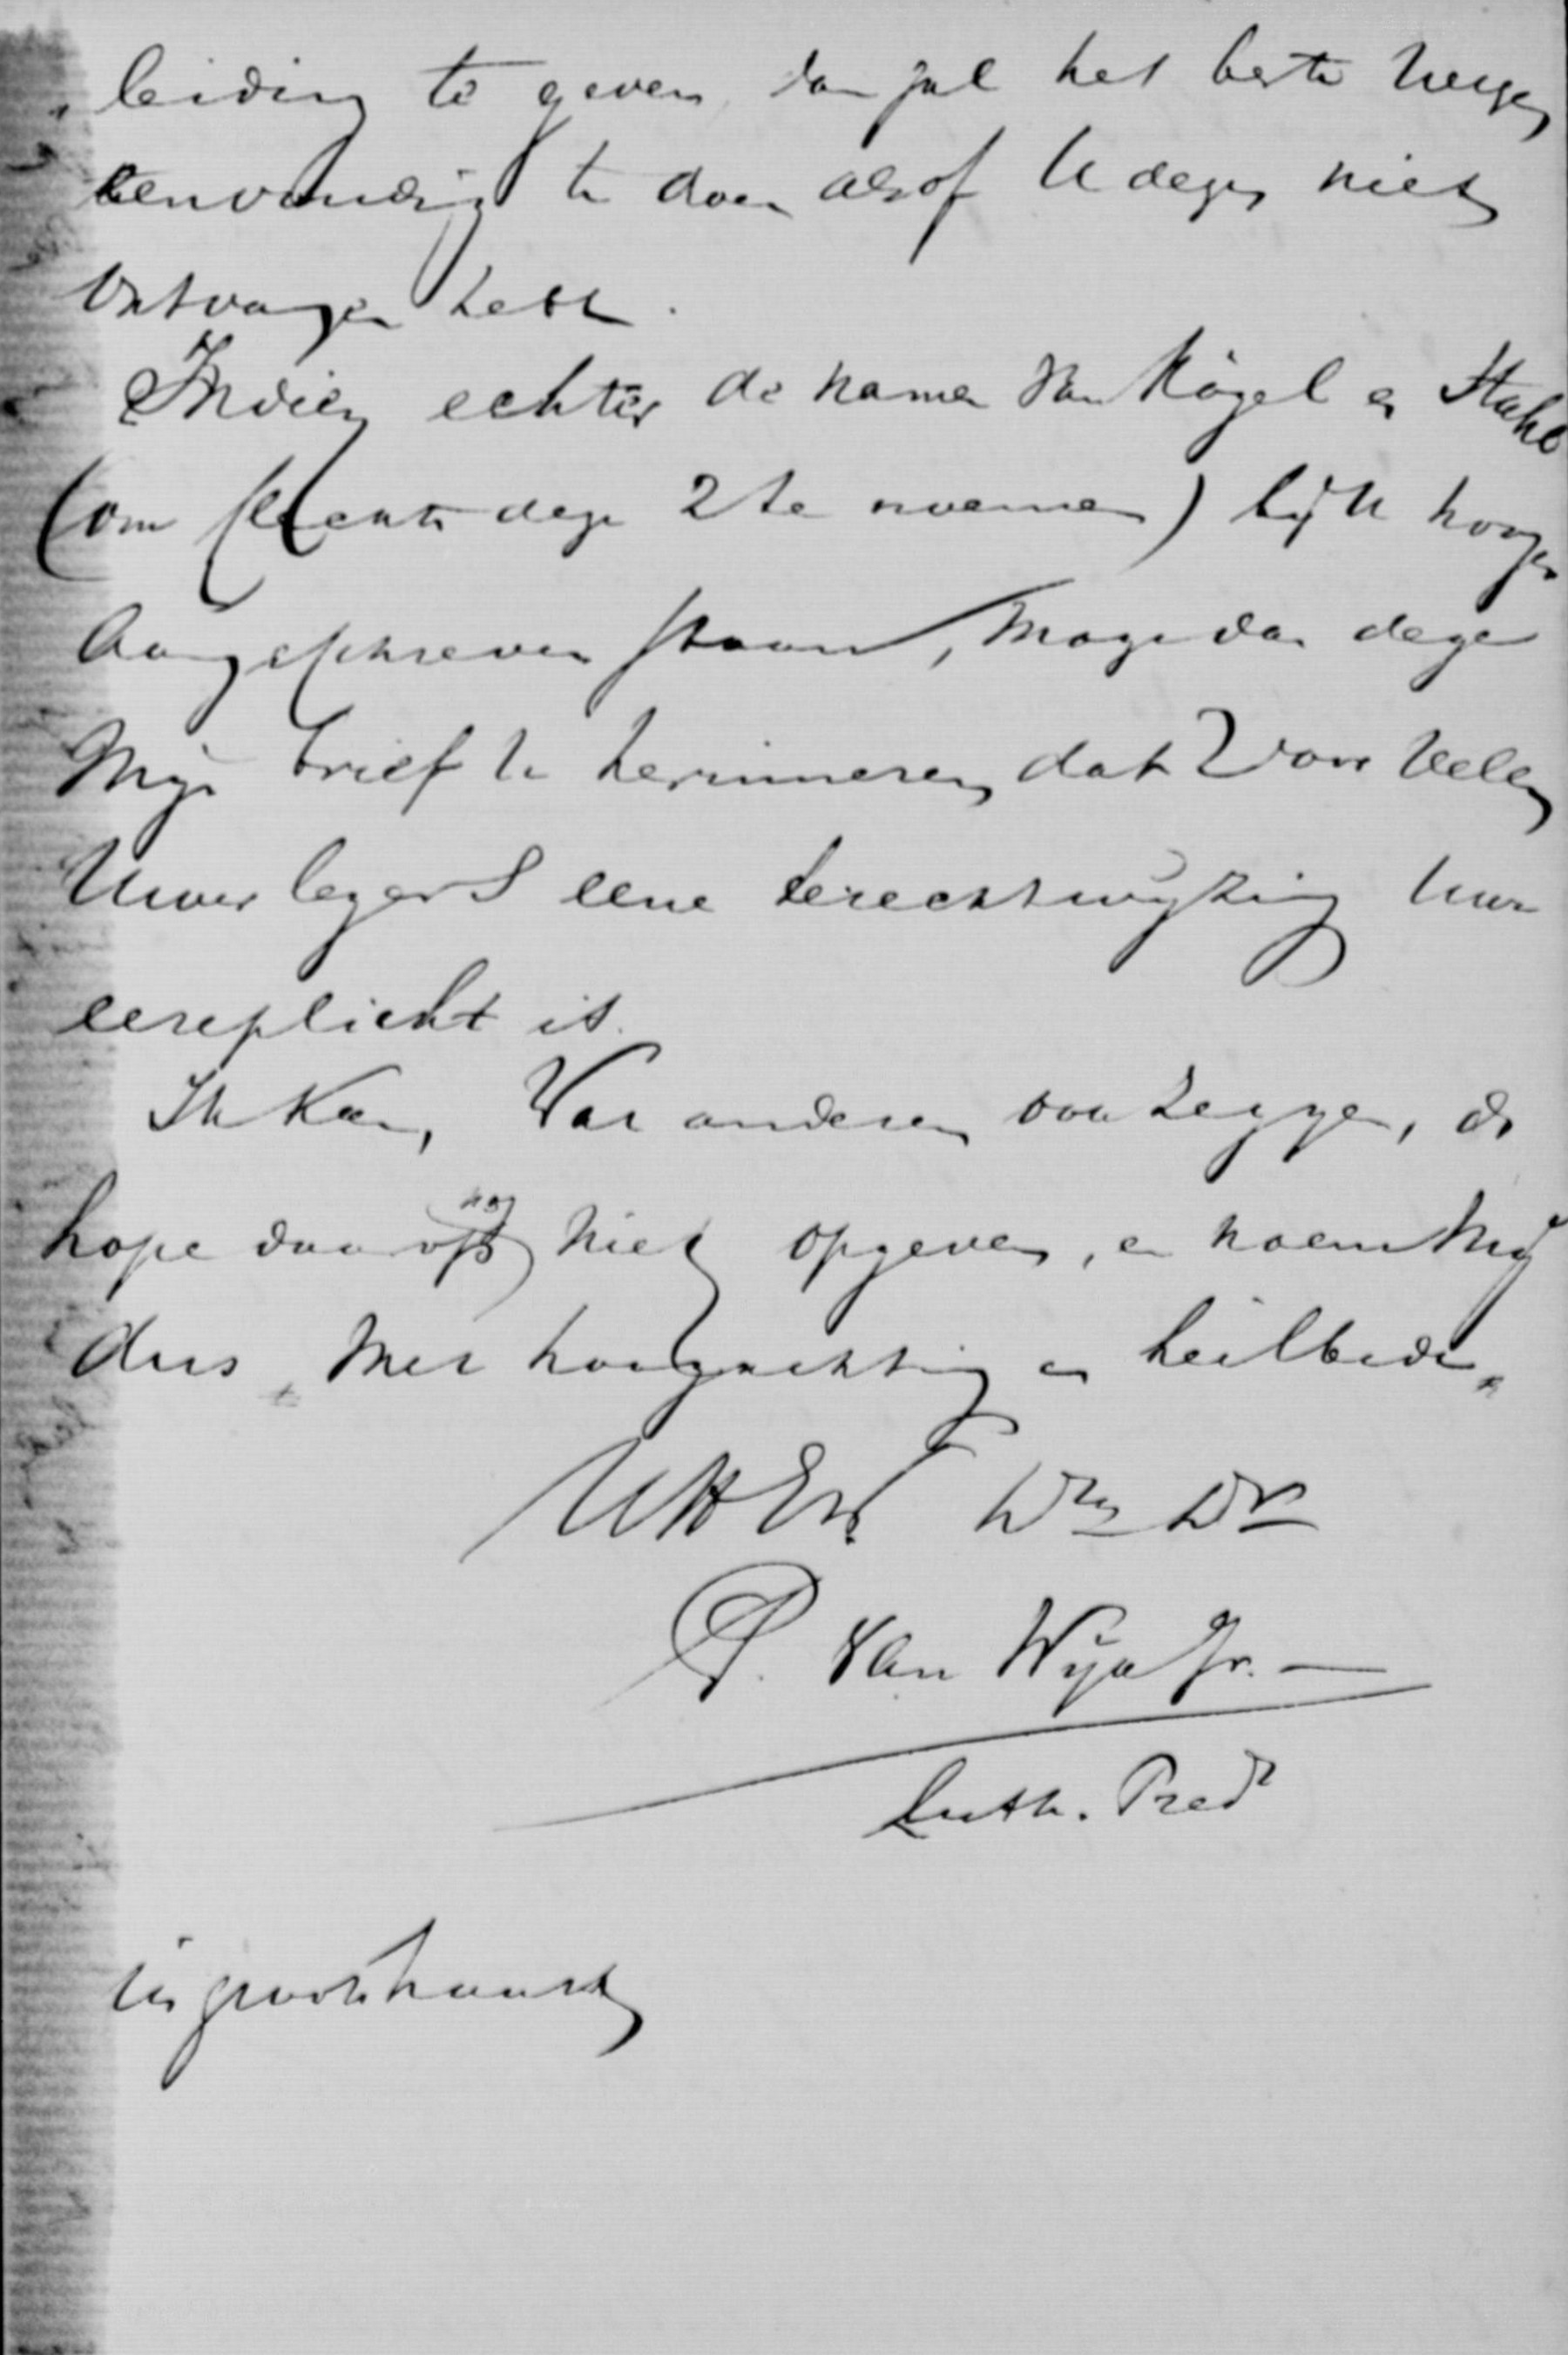 leiding te geven, dan zal het beste wezen
eenvoudig te doen alsof U dezen niet
ontvangen hebt.
Indien echter de namen van Kögel en Stahl
(om slechts deze 2 te noemen) bij U hoog
aangeschreven staan, moge dan deze
mijn brief U herinneren, dat voor velen
Uwer lezers eene terechtwijzing Uwe
eereplicht is.
Ik kan, van anderen, de
hope daarop nog niet opgeven, en noem mij
dus, met hoogachting en heilbede,
UWEw. Dw Dr
P. van Wijk Jr. —
Luth. Pred